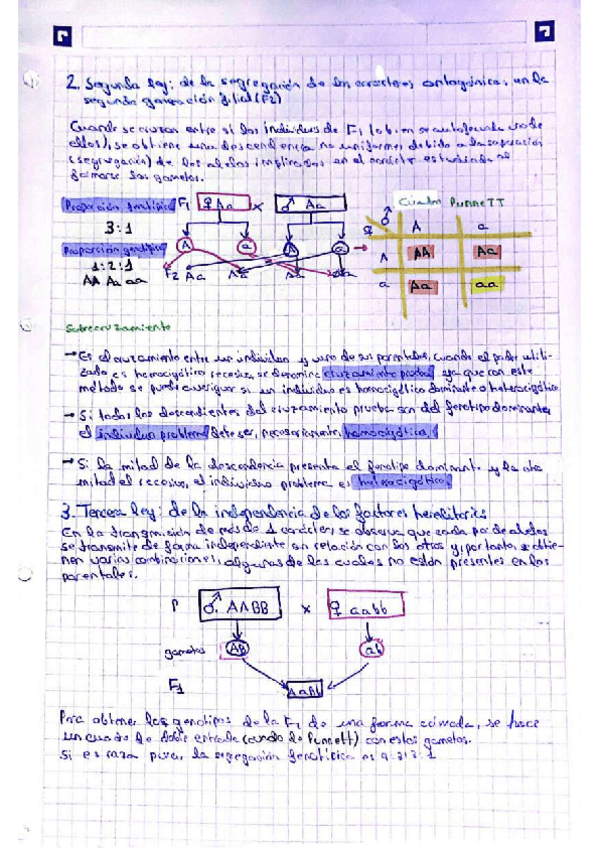 2. Segunda ley: de la segregación de los caracteres antagónicos, en la
segunda generación filial (F2)
Cuando se cruzan entre sí los individuos de F1 (o bien se autofecunda uno de
ellos), se obtiene una descendencia no uniforme, debido a la separación
(segregación) de los alelos implicados en el carácter estudiado al
formarse los gametos.
Proporción fenotípica F1 ♀ Aa x ♂ Aa
3:1
Proporción genotípica A a A a
1:2:1
AA Aa aa
F2
Cuadro PunneTT
♂ A a
♀
A AA Aa
a Aa aa
→ Es el cruzamiento entre un individuo y uno de sus parentales, cuando el padre utili-
zado es homocigótico recesivo, se denomina cruzamiento prueba, ya que con este
método se puede averiguar si un individuo es homocigótico dominante o heterocigótico
→ Si todos los descendientes del cruzamiento prueba son del fenotipo dominante,
el individuo problema debe ser, necesariamente, homocigótico.
→ Si la mitad de la descendencia presenta el fenotipo dominante y la otra
mitad el recesivo, el individuo problema es heterocigótico.
3. Tercera ley: de la independencia de los factores hereditarios
En la transmisión de más de 1 carácter, se observa que cada par de alelos
se transmite de forma independiente en relación con los otros y, por tanto, se obtie-
nen varias combinaciones, algunas de las cuales no están presentes en los
parentales.
P ♂ AABB x ♀ aabb
gametos AB ab
F1 AaBb
Para obtener los genotipos de la F2 de una forma cómoda, se hace
un cuadro de doble entrada (cuadro de Punnett) con estos gametos.
Si es raza pura, la segregación fenotípica es 9:3:3:1